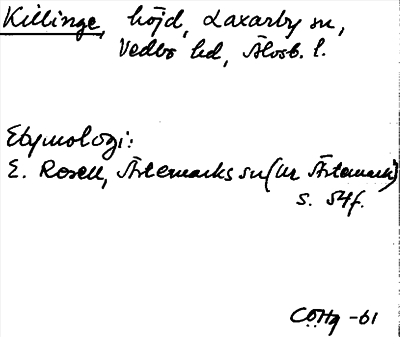 Killinge, höjd, Laxarby sn,
Vedbo hd, Älvsb. l.
Etymologi:
E. Rosell, Ärtemarks sn (ur Ärtemark)
s. 54f.
CÖHg -61